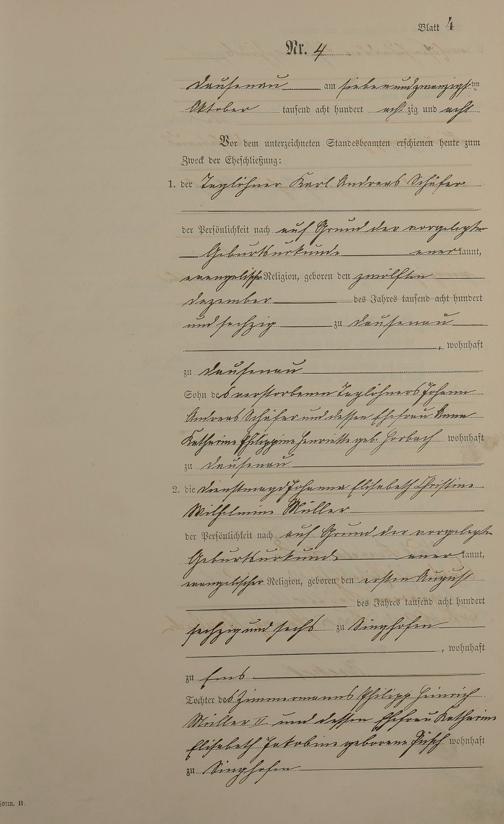 Blatt 4
Nr. 4
Dausenau am siebenundzwanzigsten
Oktober tausend acht hundert achtzig und acht
Vor dem unterzeichneten Standesbeamten erschienen heute zum
Zweck der Eheschließung:
1. der Taglöhner Karl Andreas Schäfer
der Persönlichkeit nach auf Grund der vorgelegten
Geburtsurkunde anerkannt,
evangelischer Religion, geboren den zwölften
Dezember des Jahres tausend acht hundert
und sechzig zu Dausenau
, wohnhaft
zu Dausenau
Sohn des verstorbenen Taglöhners Johann
Andreas Schäfer und dessen Ehefrau Anna
Katharine Philippine Henriette geb. wohnhaft
zu Dausenau
2. die Dienstmagd Johanna Elisabeth Christine
Wilhelmine Müller
der Persönlichkeit nach auf Grund der vorgelegten
Geburtsurkunde anerkannt,
evangelischer Religion, geboren den ersten August
des Jahres tausend acht hundert
sechzig und sechs zu Singhofen
, wohnhaft
zu Ems
Tochter des Zimmermanns Philipp Heinrich
Müller II. und dessen Ehefrau Katharine
Elisabeth Jakobine geborene wohnhaft
zu Singhofen